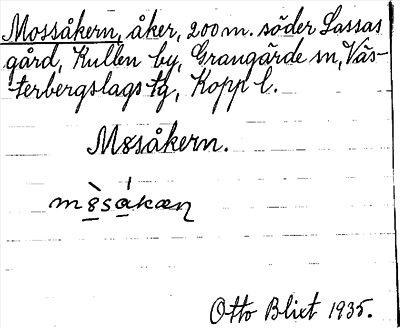 Mossåkern, åker, 200 m. söder Lassas
gård, Kullen by, Grangärde sn, Väs-
terbergslags tg, Kopp l.
M8såkern.
m8̀såkæɳ
Otto Blixt 1935.